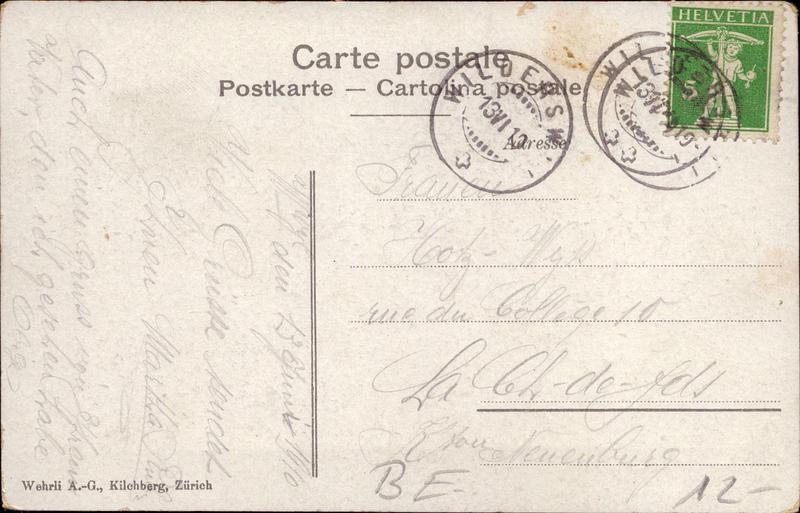 Carte postale
Postkarte — Cartolina postale
HELVETIA
5
WILDERSWIL
13 VI 10
WILDERSWIL
Adresse
Frauen
Hotz-
rue du Collège 10
La Ch-de-fds
Kton Neuenburg
den 13 Juni 1910
Viele Grüsse sendet
Ihnen Martha
Auch einen Gruss von Ihrem
Vater, den ich gesehen habe
BE- 12-
Wehrli A.-G., Kilchberg, Zürich